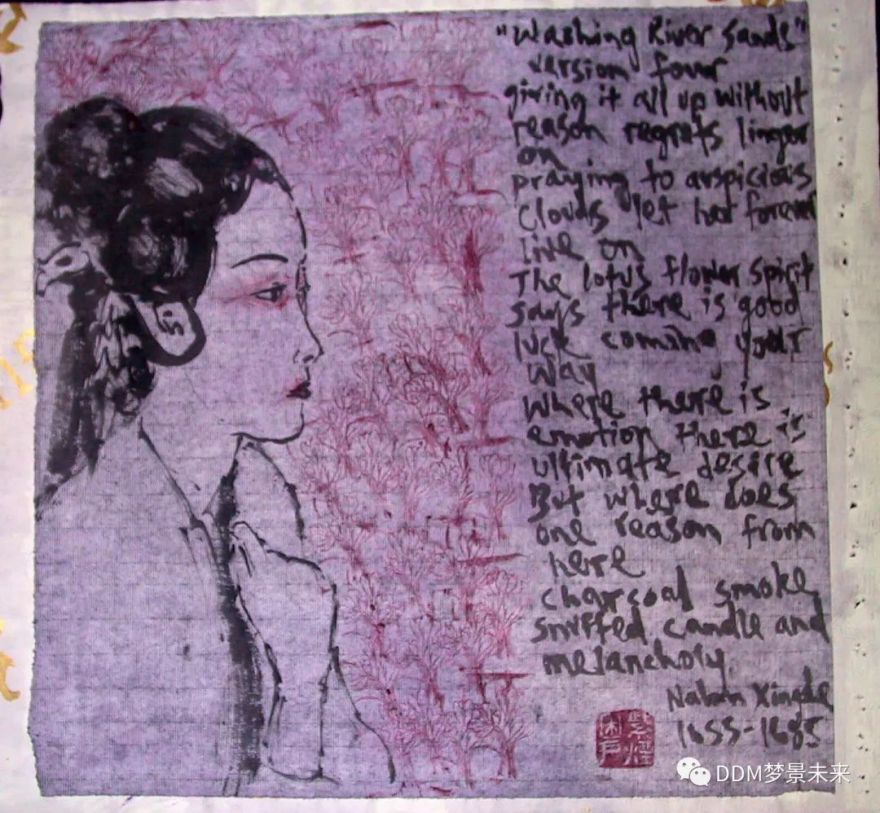 "Washing River Sands"
version four
giving it all up without
reason regrets linger
on
praying to auspicious
clouds yet had forem
live on
The lotus flower spirit
says there is good
luck coming your
way
Where there is
emotion there is
ultimate desire
But where does
one reason from
here
charcoal smoke
snuffed candle and
melancholy
Nalan Xingde
1655-1685
紫烟
闭户
DDM梦景未来